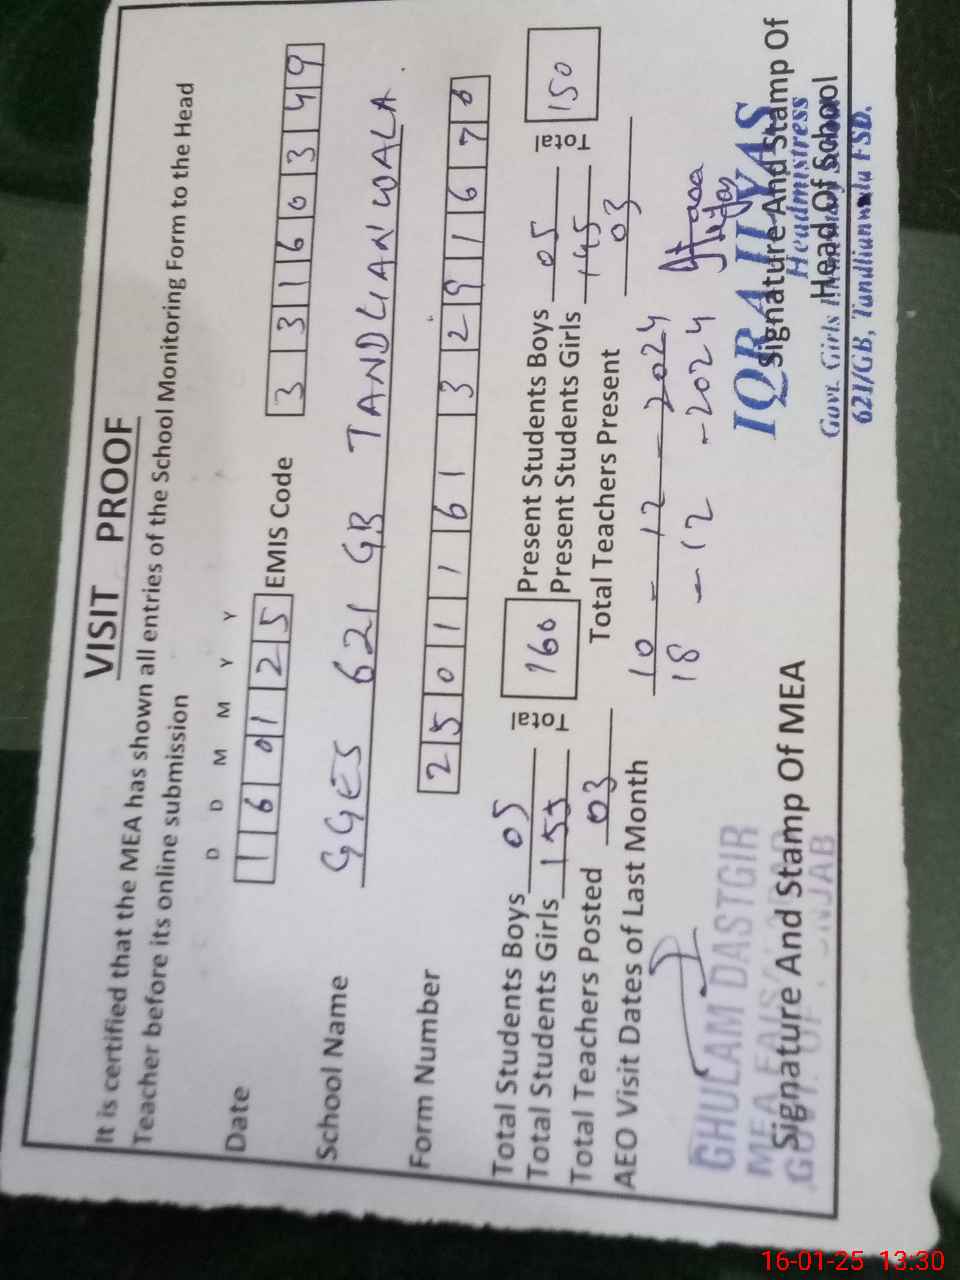 VISIT PROOF
It is certified that the MEA has shown all entries of the School Monitoring Form to the Head
Teacher before its online submission
D D M M Y Y
Date 1 6 0 1 2 5 EMIS Code 3 3 1 6 0 3 4 9
School Name GGES 621 GB TANDLIANWALA
Form Number 2 5 0 1 1 6 1 3 2 9 1 6 7 6
Total Students Boys 05 Total 160 Present Students Boys 05 Total 150
Total Students Girls 155 Present Students Girls 145
Total Teachers Posted 03 Total Teachers Present 03
AEO Visit Dates of Last Month 10 - 12 - 2024
18 - 12 - 2024
GHULAM DASTGIR
MEA FAISALABAD
GOVT. OF PUNJAB
Signature And Stamp Of MEA
IQRA ILYAS
Headmistress
Govt. Girls
621/GB, Tandlianwala FSD.
Signature And Stamp Of
Head Of School
16-01-25 13:30